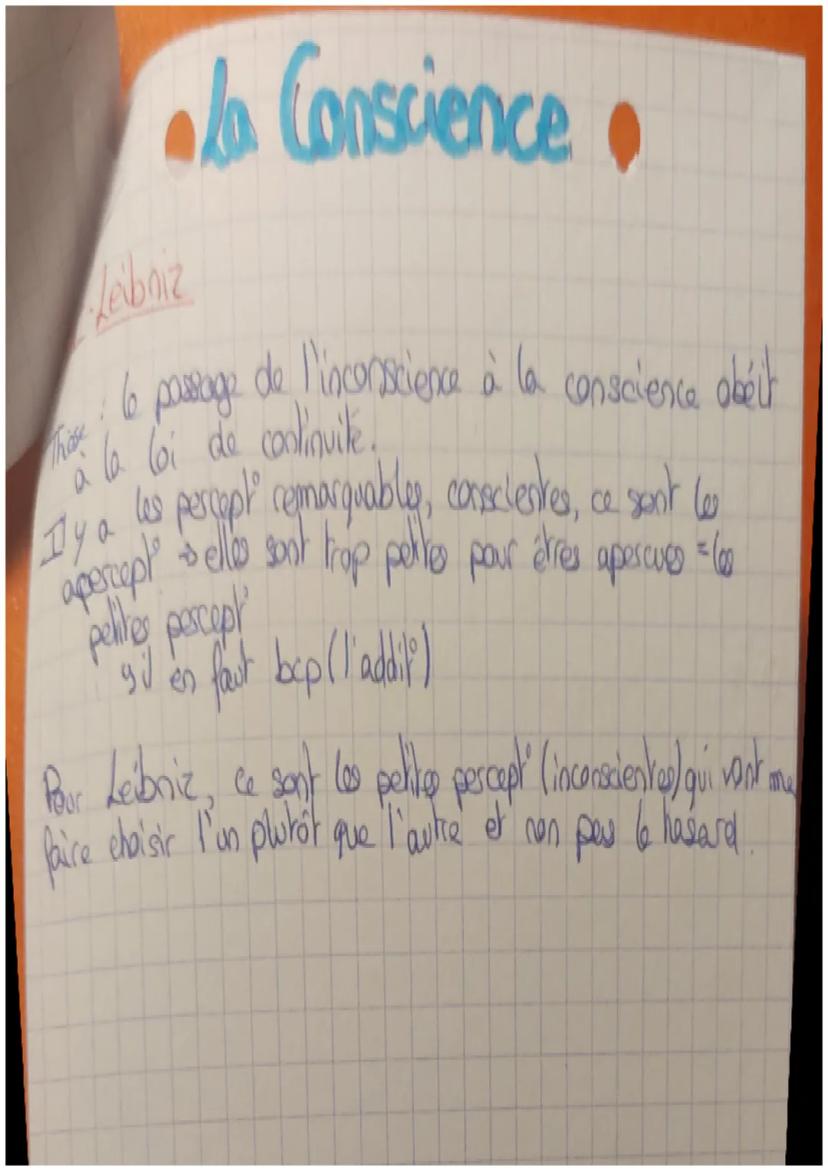 La Conscience
Leibniz
Thèse : le passage de l'inconscience à la conscience obéit
à la loi de continuité.
Il y a les percept° remarquables, conscientes, ce sont les
apercept° → elles sont trop petites pour êtres apercues = les
petites percept°
s'il en faut bcp (l'addit°)
Pour Leibniz, ce sont les petites percept° (inconscientes) qui vont me
faire choisir l'un plutôt que l'autre et non pas le hasard.